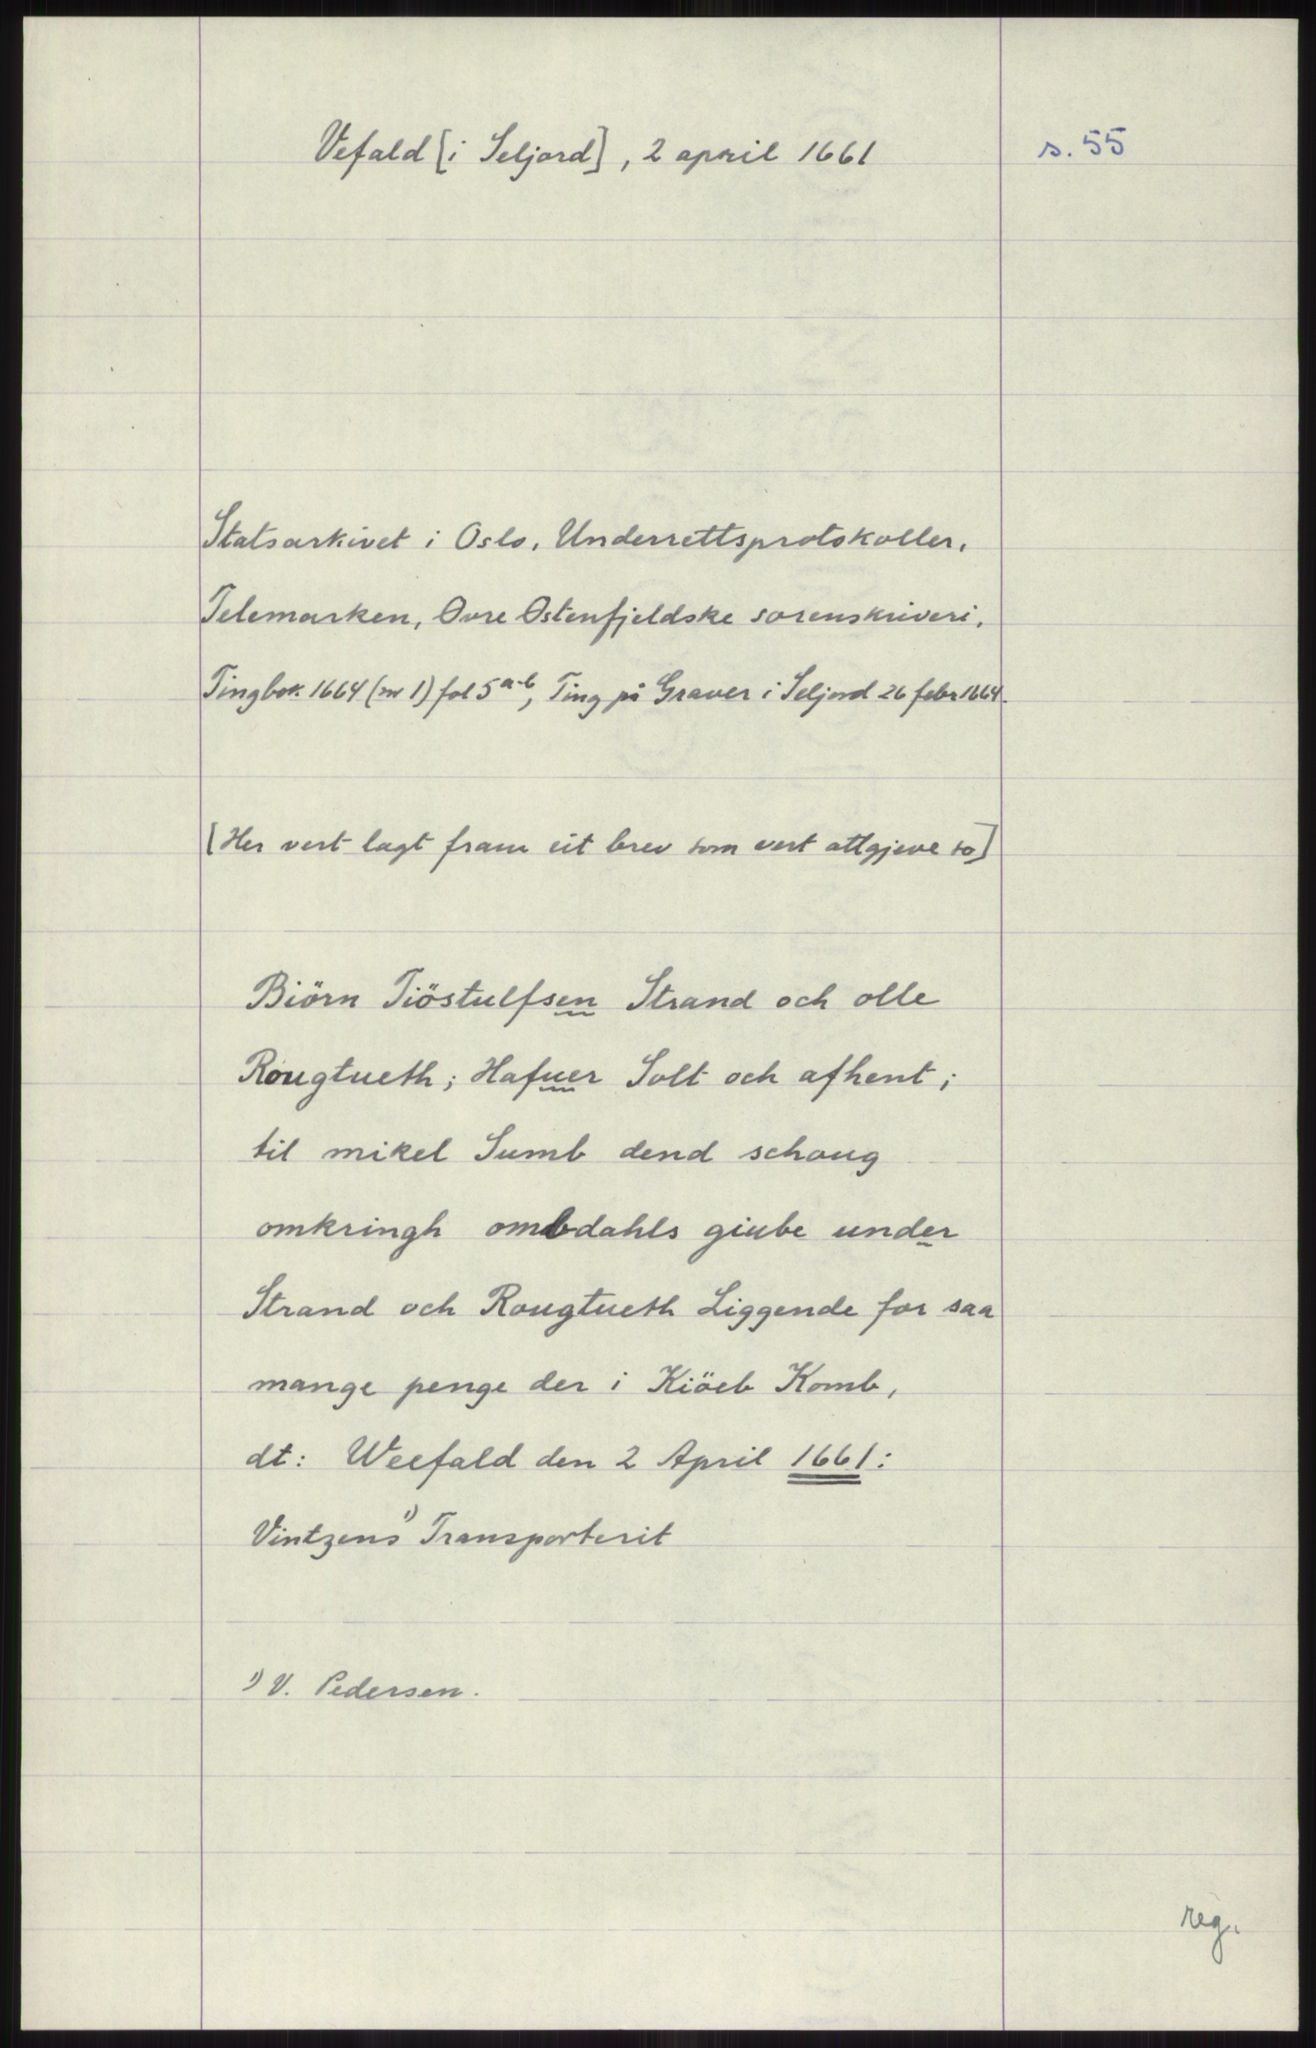 Vefald [i Seljord], 2 april 1661
s. 55
Statsarkivet i Oslo, Underrettsprotokoller,
Telemarken, Øvre Østenfjeldske sorenskriveri,
Tingbok 1664 (nr 1) fol 5 a-b, Ting på Graver i Seljord 26 febr 1664.
[Her vert lagt fram eit brev som vert attgjeve so]
Biörn Tiöstulfsen Strand och olle
Rougtueth; Hafuer Solt och afhent;
til mikel Sumb dend schoug
omkringh ombdahls giube under
Strand och Rougtueth Liggende for saa
mange penge der i Kiöeb Komb,
dt: Weefald den 2 April 1661:
Vintzens 1) Transporterit
1) V. Pedersen.
reg.